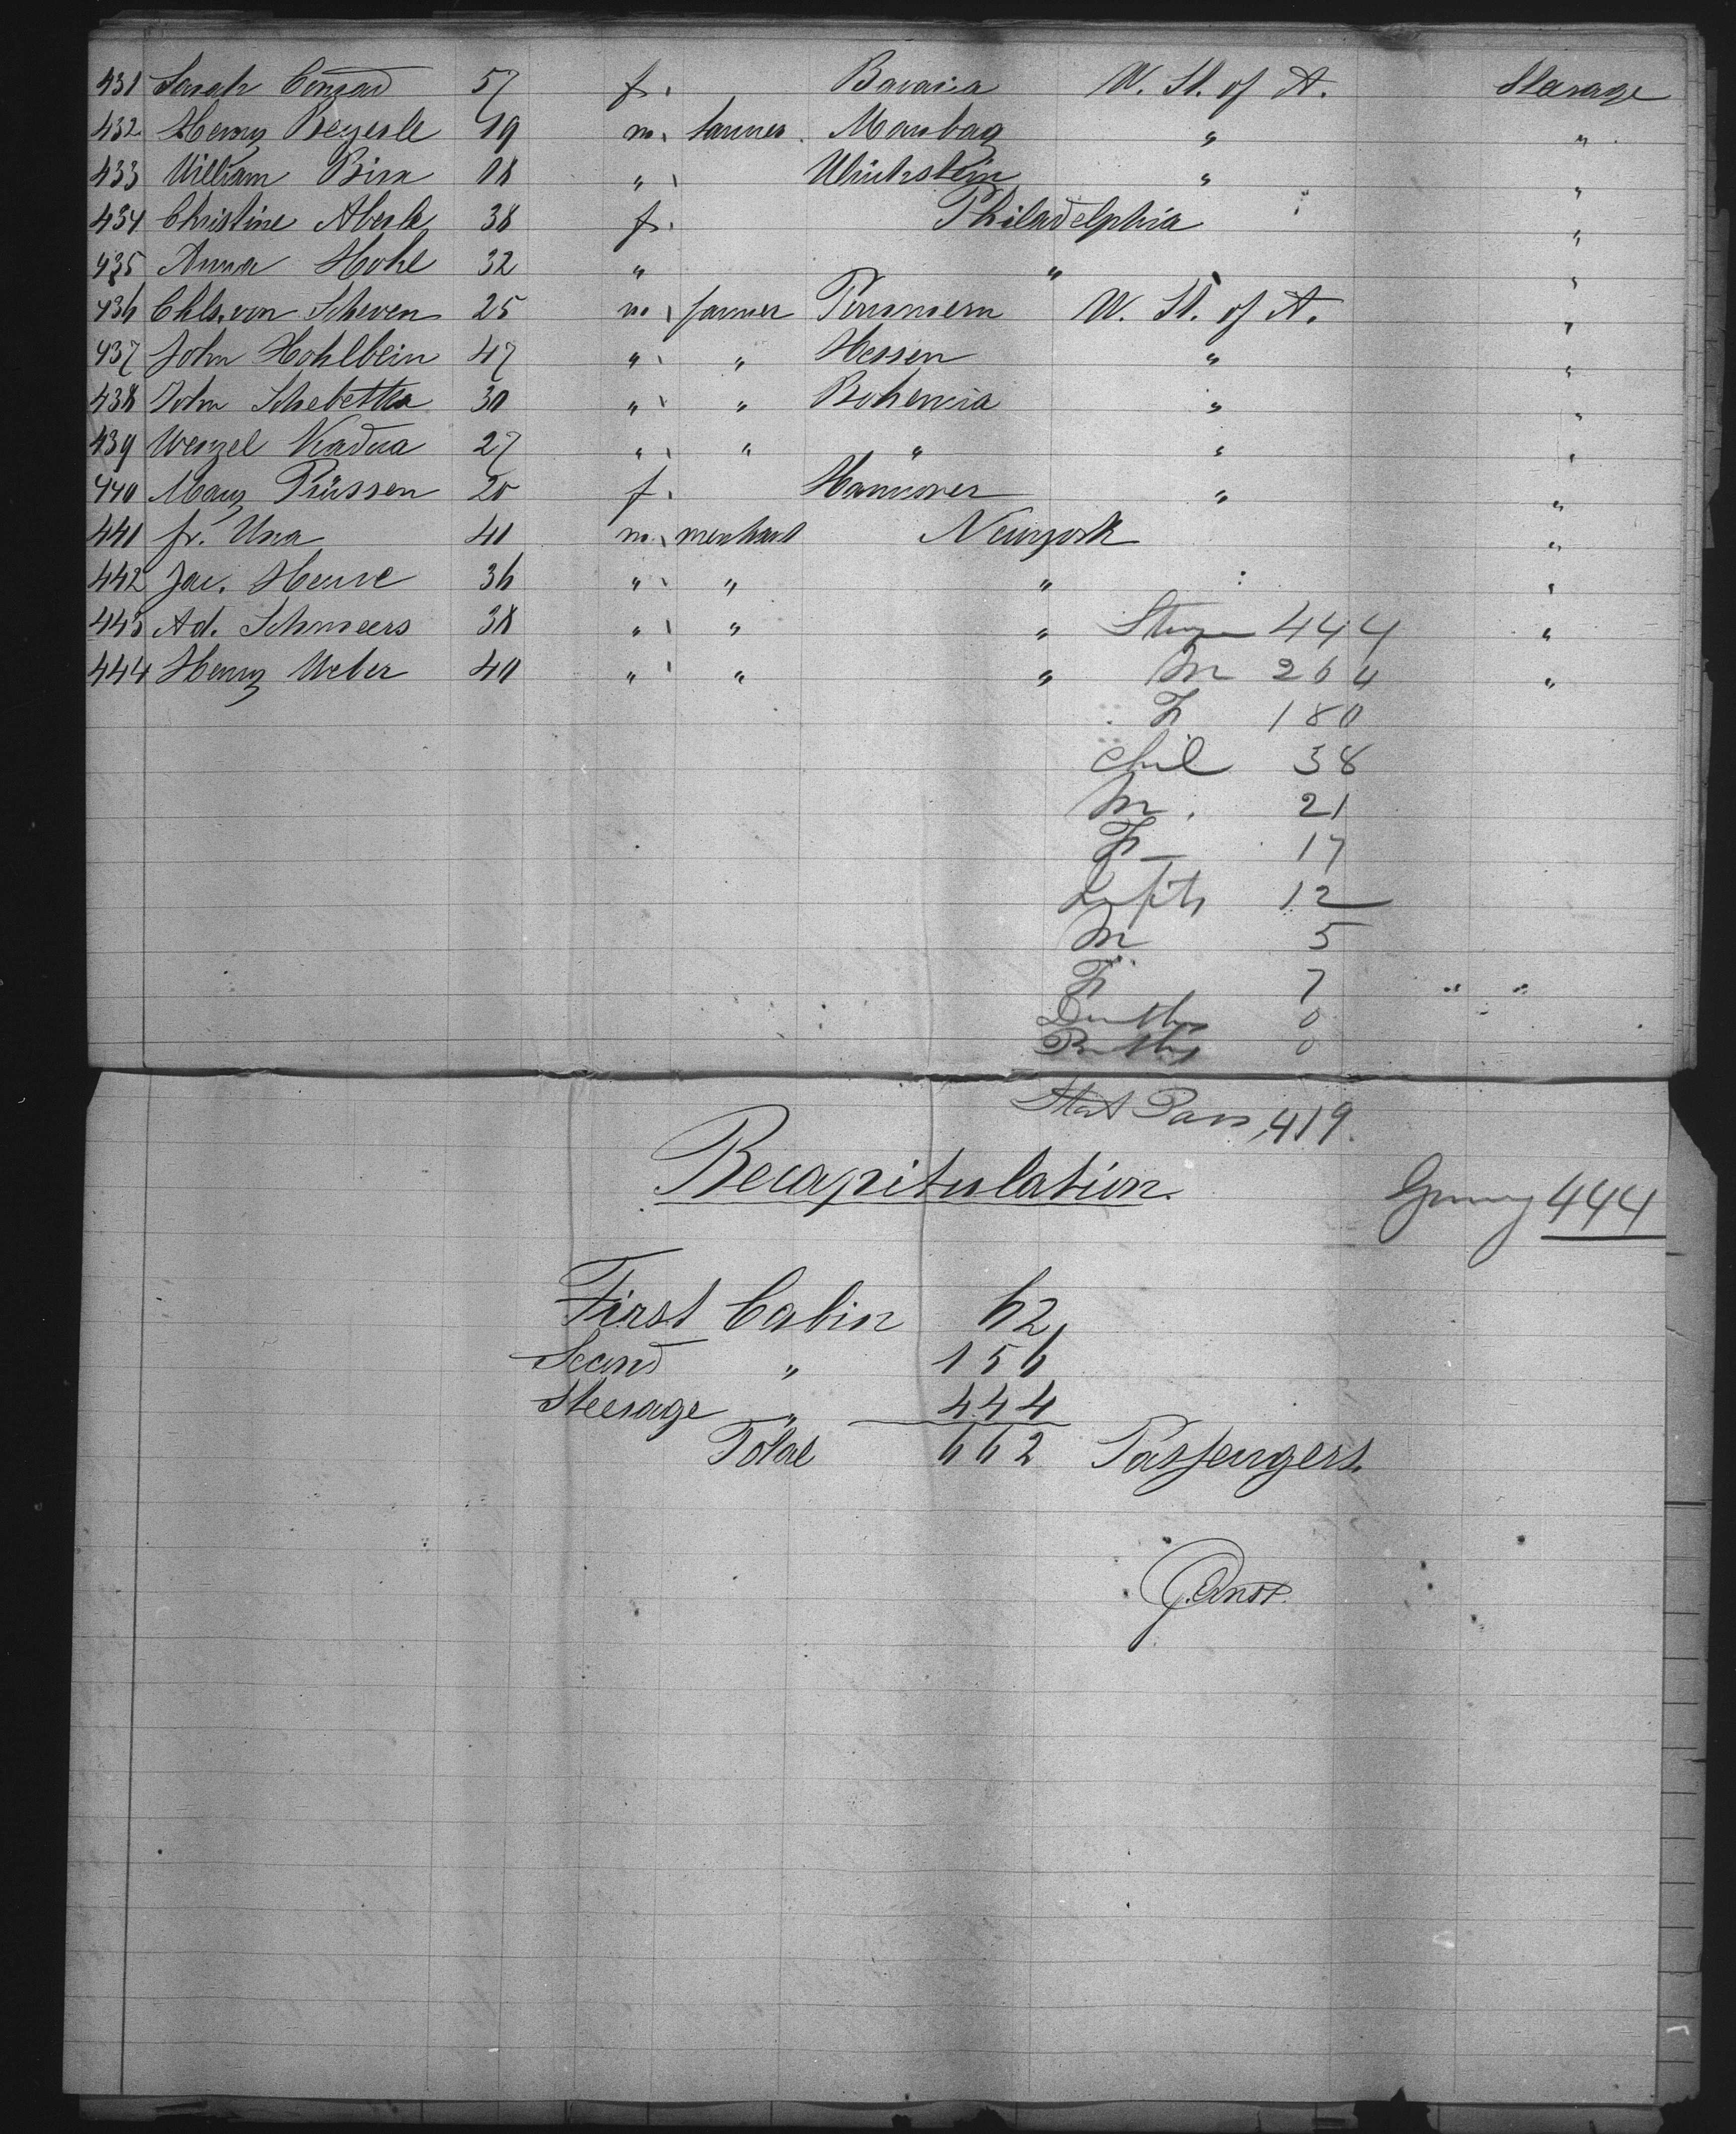 431 Sarah Conrad 57 f. Bavaria U. St. of A. Steerage
432 Henry Beyerle 19 m. tanner. Marbag " "
433 William Birx 18 " Ulrichstein " "
434 Christine Aberle 38 f. Philadelphia "
435 Anna Hohl 32 " " "
436 Chls. von Scheven 25 m farmer Pommern U. St. of A. "
437 John Hohlbein 47 " " Hessen " "
438 John Schebetka 30 " " Bohemia " "
439 Wenzel 27 " " " " "
440 Mary Prüssen 20 f. Hannover " "
441 fr. Una 41 m. merchant Newyork "
442 Jac. 36 " " " "
443 Ad. Schmeers 38 " " " "
444 Henry Weber 40 " " " "
444
M 264
F 180
Chil 38
M. 21
F 17
Infts 12
M 5
F 7
Deaths 0
Births 0
Stat Pass, 419.
Recapitulation.
Gmny 444
First Cabin 62,
Second " 156
Steerage " 444
Total 662 Passengers.